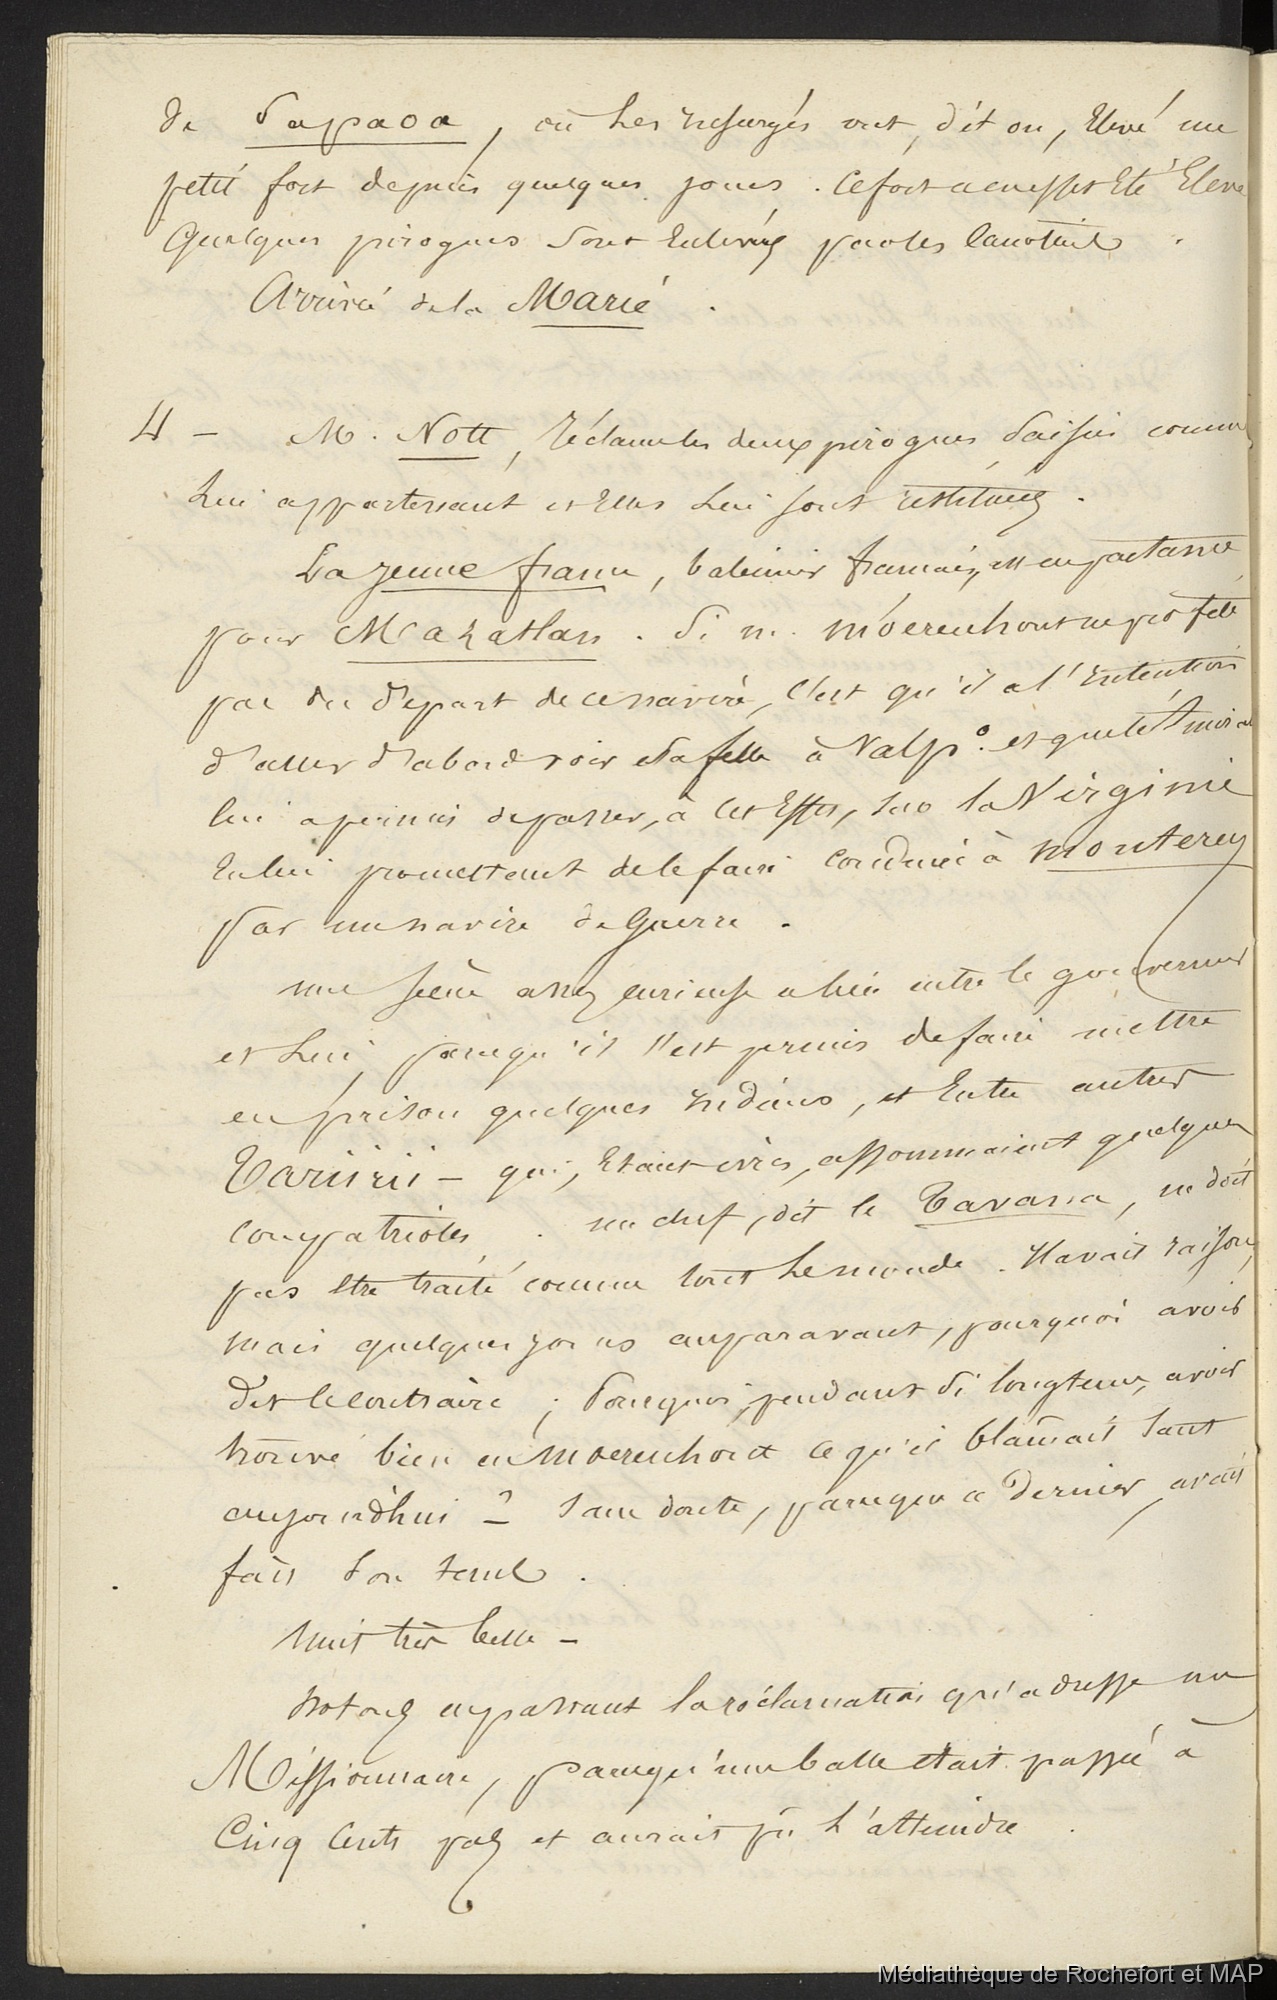 de Papaoa, où les insurgés ont, dit on, Elevé un
petit fort depuis quelques jours. Ce fort a en effet été Elevé
Quelques pirogues sont Enlevées par les canotiers.
Arrivée de la Marie.
4 - M. Nott, réclame les deux pirogues saisies comme
lui appartenant et Elles lui sont restituées.
La jeune france, baleinier français, est en partance
pour Mazatlan. Si M. Moerenhout ne profite
pas du départ de ce navire, c'est qu'il a l'intention
d'aller d'abord voir sa fille à Valpo. et que l'amiral
lui a permis de passer, à cet Effet, sur la Virginie
En lui promettant de le faire conduire à Monterey
par un navire de Guerre.
une scène assez curieuse a lieu entre le gouverneur
et lui, parcequ'il s'est permis de faire mettre
en prison quelques indiens, et Entre autres
Tariirii - qui, Etant ivres, assommaient quelques
compatriotes. un chef, dit le Tavana, ne doit
pas être traité comme tout le monde. Il avait raison,
mais quelques jours auparavant, pourquoi avoir
dit le contraire ; Pourquoi, pendant si longtems, avoir
trouvé bien en Moerenhout ce qu'il blâmait tant
aujourd'hui ? Sans doute, parceque ce dernier, avait
fait son tems.
Nuit très belle -
Notons en passant la réclamation qu'adresse un
Missionnaire, parcequ'une balle était passée à
Cinq Cents pas et aurait pû l'atteindre.
Médiathèque de Rochefort et MAP